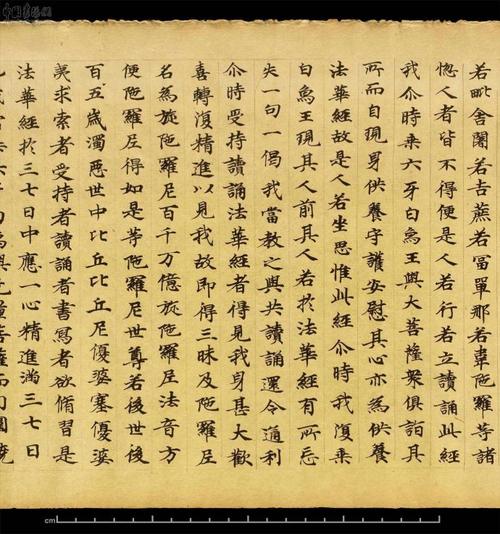 若毗舍闍若吉蔗若富單那若韋陁羅等諸
惱人者皆不得便是人若行若立讀誦此經
我尒時乘六牙白象王與大菩薩衆俱詣其
所而自現身供養守護安慰其心亦為供養
法華經故是人若坐思惟此經尒時我復乘
白象王現其人前其人若於法華經有所忘
失一句一偈我當教之與共讀誦還令通利
尒時受持讀誦法華經者得見我身甚大歡
喜轉復精進以見我故即得三昧及陁羅尼
名為旋陁羅尼百千万億旋陁羅尼法音方
便陁羅尼得如是等陁羅尼世尊若後世後
百五歲濁惡世中比丘比丘尼優婆塞優婆
夷求索者受持者讀誦者書寫者欲脩習是
法華經於三七日中應一心精進滿三七日
cm